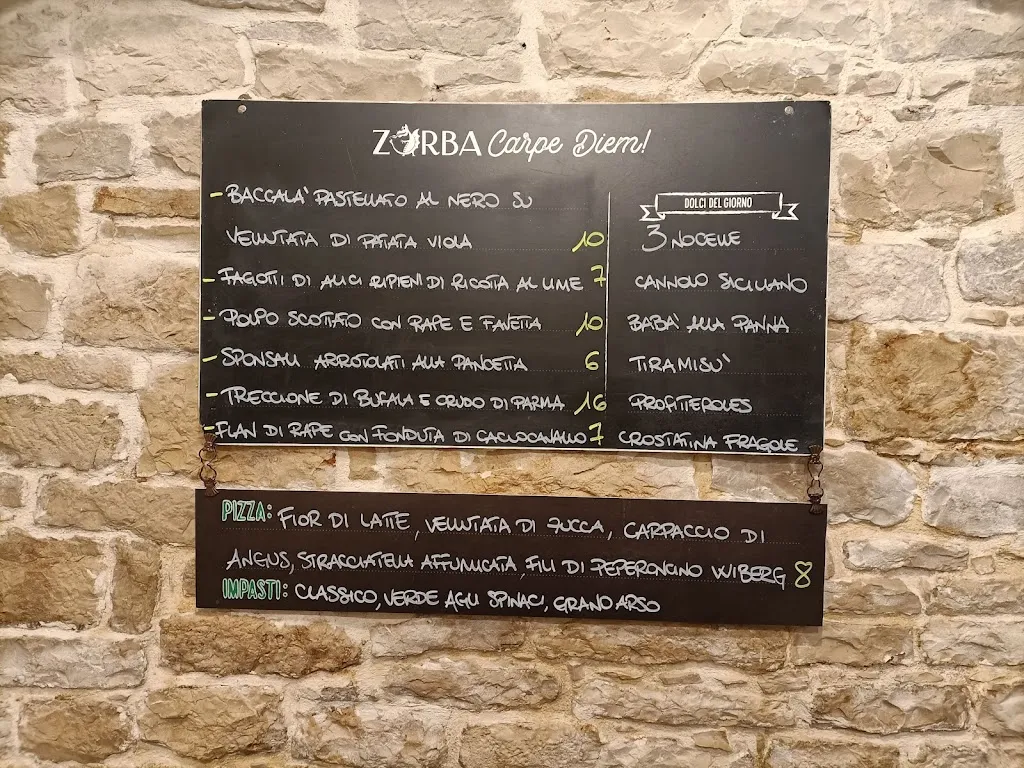 ZORBA Carpe Diem!
- BACCALA' PASTELLATO AL NERO SU
VELLUTATA DI PATATA VIOLA 10
- FAGOTTI DI ALICI RIPIENI DI RICOTTA AL LIME 7
- POLPO SCOTTATO CON RAPE E FAVETTA 10
- SPONSALI ARROTOLATI ALLA PANCETTA 6
- TRECCIONE DI BUFALA E CRUDO DI PARMA 16
- FLAN DI RAPE CON FONDUTA DI CACIOCAVALLO 7
DOLCI DEL GIORNO
3 NOCELLE
CANNOLO SICILIANO
BABA' ALLA PANNA
TIRAMISU'
PROFITTEROLES
CROSTATINA FRAGOLE
PIZZA: FIOR DI LATTE, VELLUTATA DI ZUCCA, CARPACCIO DI
ANGUS, STRACCIATELLA AFFUMICATA, FILI DI PEPERONCINO WIBERG 8
IMPASTI: CLASSICO, VERDE AGLI SPINACI, GRANO ARSO